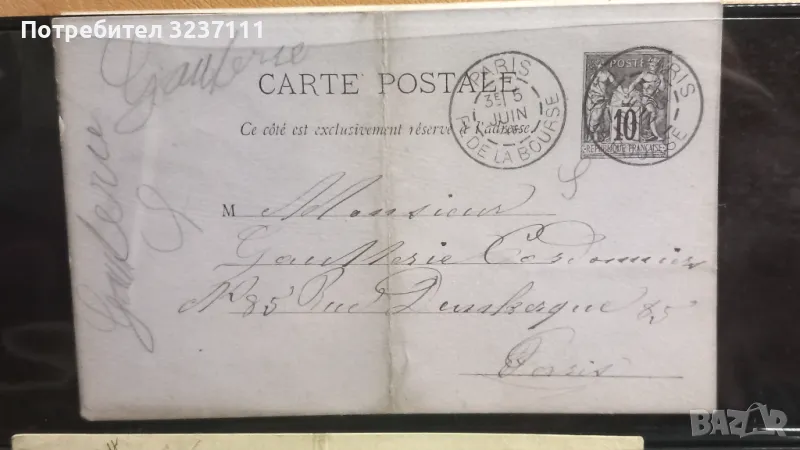 Потребител 3237111
Gaulterie
Gaulterie
CARTE POSTALE
Ce côté est exclusivement réservé à l'adresse.
PARIS
3E 5
JUIN
R. DE LA BOURSE
POSTE
10
REPUBLIQUE FRANÇAISE
PARIS
M Monsieur
Gaultterie Cordonnier
No 85 Rue Dunkerque 85
Paris
BAZAR